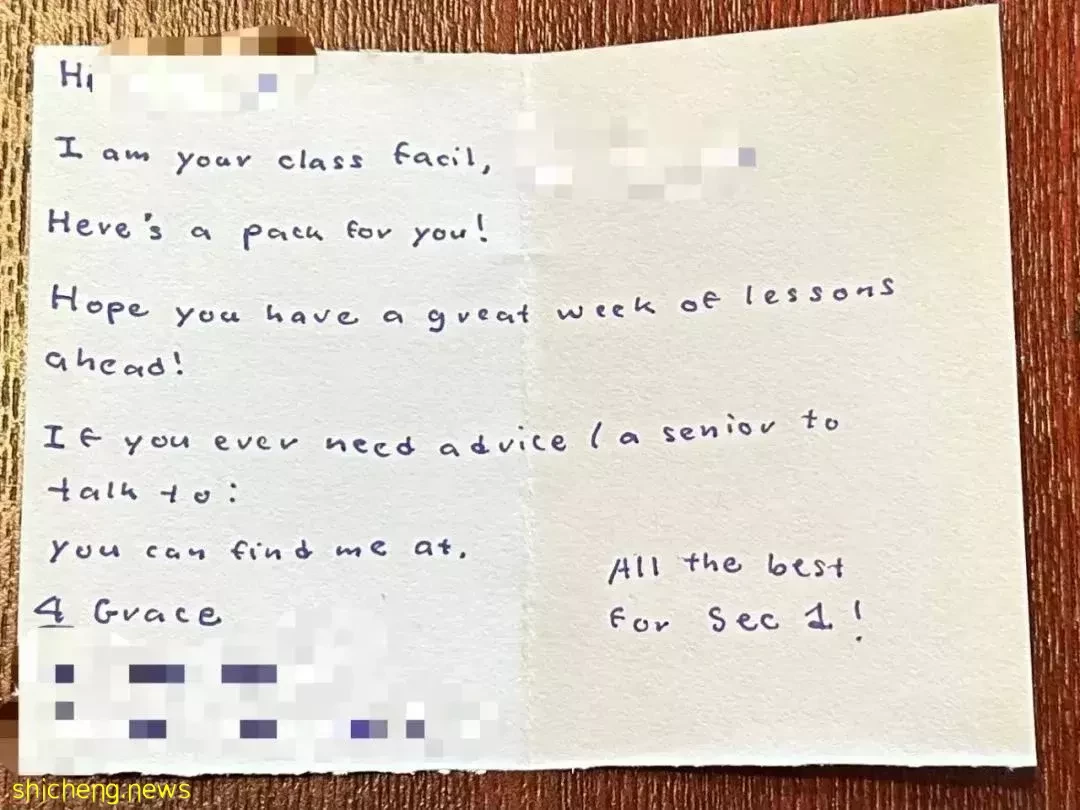 Hi
I am your class facil,
Here's a pack for you!
Hope you have a great week of lessons
ahead!
If you ever need advice / a senior to
talk to:
you can find me at.
4 Grace
All the best
for Sec 1!
shicheng.news